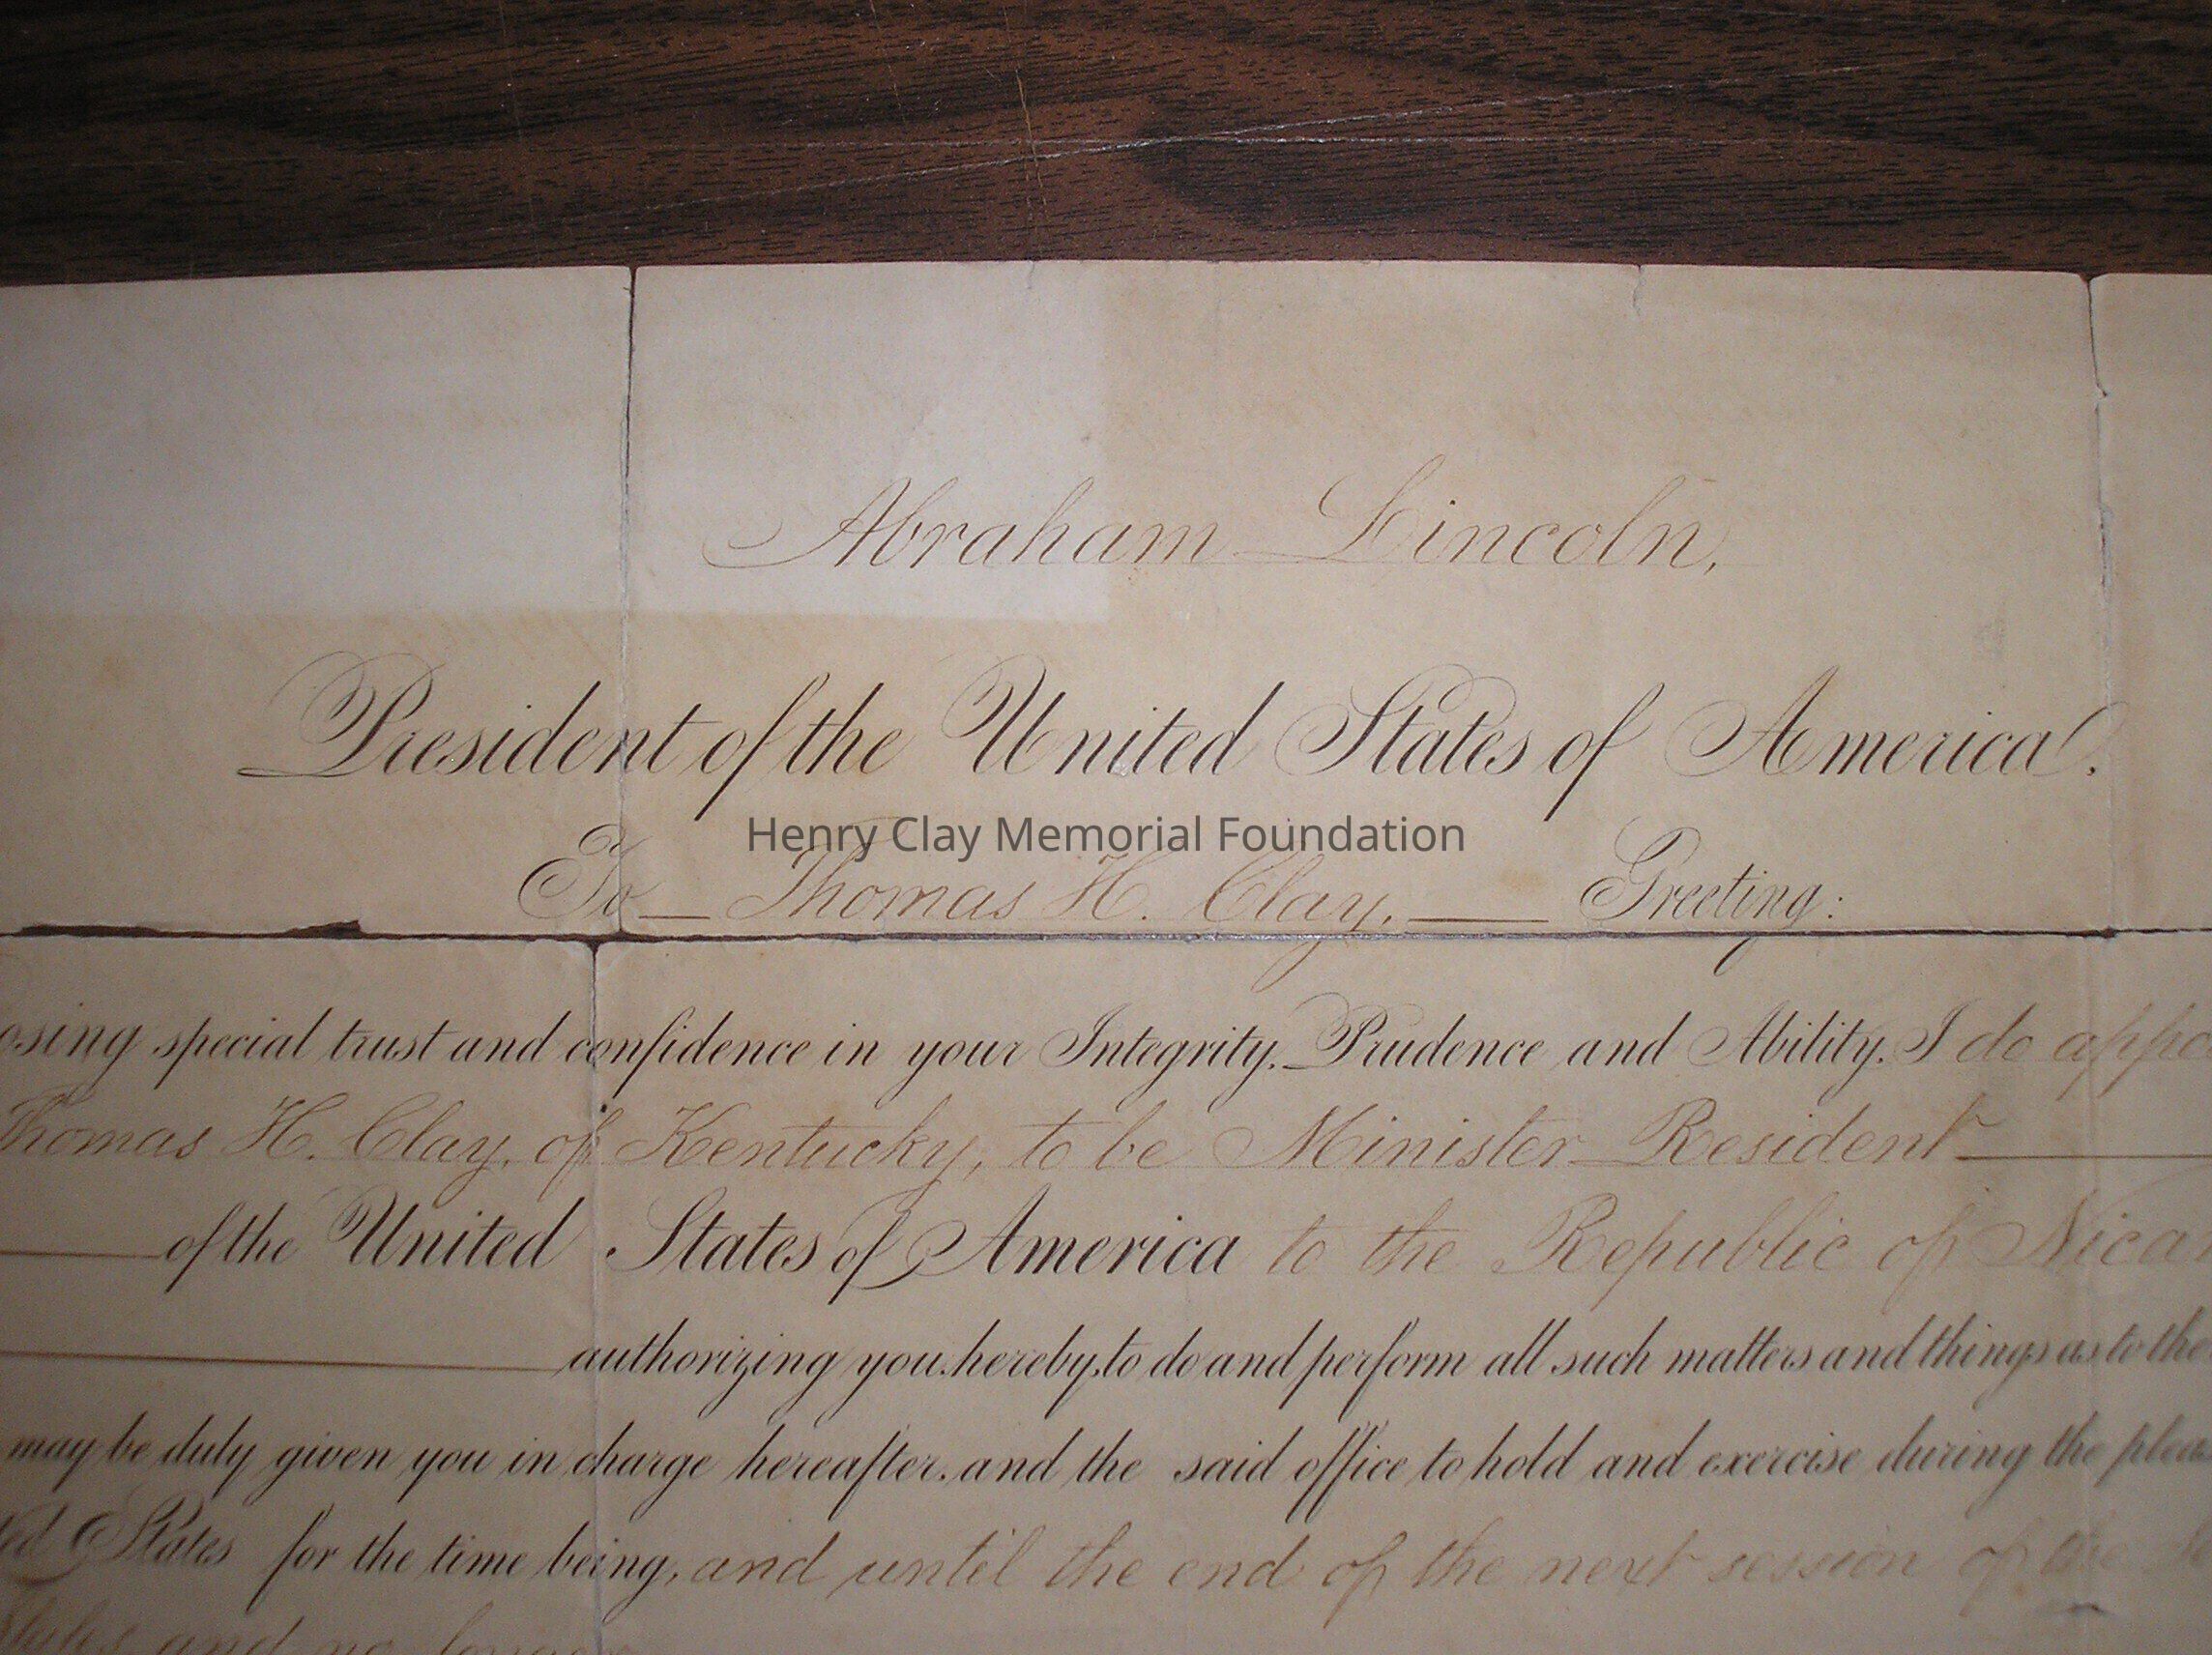 Abraham Lincoln,
President of the United States of America.
Henry Clay Memorial Foundation
To Thomas H. Clay, Greeting:
osing special trust and confidence in your Integrity, Prudence and Ability, I do appo
Thomas H. Clay, of Kentucky, to be Minister Resident
of the United States of America to the Republic of Nica
authorizing you, hereby, to do and perform all such matters and things as to the
may be duly given you in charge hereafter, and the said office to hold and exercise during the pleas
ed States for the time being, and until the end of the next session of the Se
States and no longer